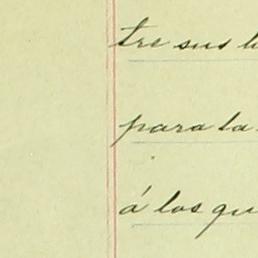 tre sus
para la
á los qu